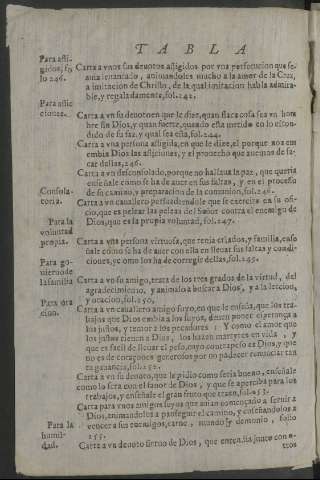 TABLA
Para afli-
gidos, fo
lo 246.
Carta a vnos sus deuotos afligidos por vna persecucion que se
auia leuantado, animandoles mucho a la amor de la Cruz,
a imitacion de Christo, de la qual imitacion habla admira-
ble, y regaladamente, fol. 242.
Para aflic
ciones.
Carta a vn su deuoto en que le dize, quan flaca cosa sea vn hom
bre sin Dios, y quan fuerte, quando está metido en lo escon-
dido de su faz, y qual sea esta, fol. 244.
Carta a vna persona afligida, en que le dize, el porque nos em
embia Dios las afliciones, y el prouecho que auemos de sa-
car dellas, 246.
Carta a vn desconsolado, porque no hallaua la paz, que queria
enseñale como se ha de auer en sus faltas, y en el processo
Consola-
toria.
de su camino, y preparacion de la comunion, fol. 246.
Carta a vn cauallero persuadiendole que se exercite en su ofi-
cio, que es pelear las peleas del Señor contra el enemigo de
Para la
voluntad
propia.
Dios, que es la propia voluntad, fol. 247.
Carta a vna persona virtuosa, que tenia criados, y familia, enso
ñale como se ha de auer con ella en lleuar sus faltas y condi-
Para go-
uierno de
la familia
ciones, y como los ha de corregir dellas, fol. 249.
Carta a vn su amigo, trata de los tres grados de la virtud, del
agradecimiento, y animalo a buscar a Dios, y a la leccion,
Para ora
cion.
y oracion, fol. 250.
Carta a vn cauallero amigo suyo, en que le enseña, que los tra-
bajos que Dios embia a los suyos, deuen poner esperança a
los justos, y temor a los pecadores: Y como el amor que
los justos tienen a Dios, los hazen martyres en vida, y
que es facil de lleuar el peso, cuyo contrapeso es Dios, y que
no es de coraçones generosos por no padecer renunciar tan
ta ganancia, fol. 252.
Carta a vn su deuoto, que le pidio como seria bueno, enseñale
como lo sera con el fauor de Dios, y que se aperciba para los
trabajos, y enseñale el gran fruto que traen, fol. 253.
Carta para vnos amigos suyos que auian començado a seruir a
Dios, animandolos a proseguir el camino, y enseñandolos a
Para la
humil-
dad.
vencer a sus enemigos, carne, mundo, y demonio, folio
255.
Carta a vn deuoto sieruo de Dios, que entendia junto con o-
tros